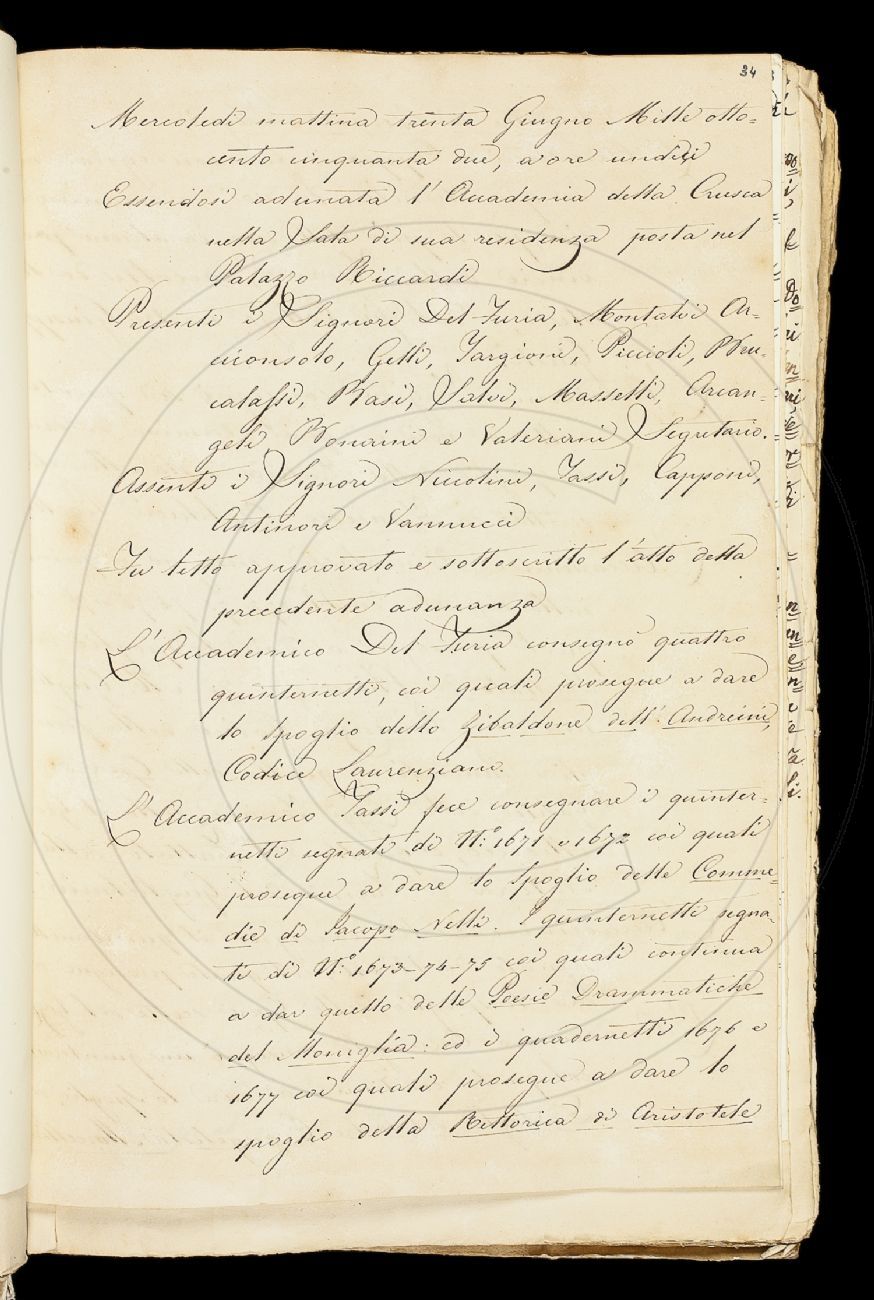 34
Mercoledì mattina trenta Giugno Mille otto=
cento cinquanta due, a ore undici
Essendosi adunata l'Accademia della Crusca
nella Sala di sua residenza posta nel
Palazzo Riccardi
Presenti i Signori Del-Furia, Montalvi Ar=
ciconsolo, Gelli, Targioni, Piccioli, Bru=
calassi, Basi, Salvi, Masselli, Arcan=
geli Bonaini e Valeriani Segretario.
Assenti i Signori Niccolini, Tassi, Capponi,
Antinori e Vannucci
Fu letto approvato e sottoscritto l'atto della
precedente adunanza
L'Accademico Del Furia consegnò quattro
quinternetti, coi quali prosegue a dare
lo spoglio dello Zibaldone dell'Andreini,
Codice Laurenziano.
L'Accademico Tassi fece consegnare i quinter=
netti segnati di N:° 1671 e 1672 coi quali
prosegue a dare lo spoglio delle Comme=
die di Iacopo Nelli. I quinternetti segna=
ti di N:° 1673-74-75 coi quali continua
a dar quello delle Poesie Drammatiche
del Moniglia: ed i quadernetti 1676 e
1677 coi quali prosegue a dare lo
spoglio della Rettorica di Aristotele